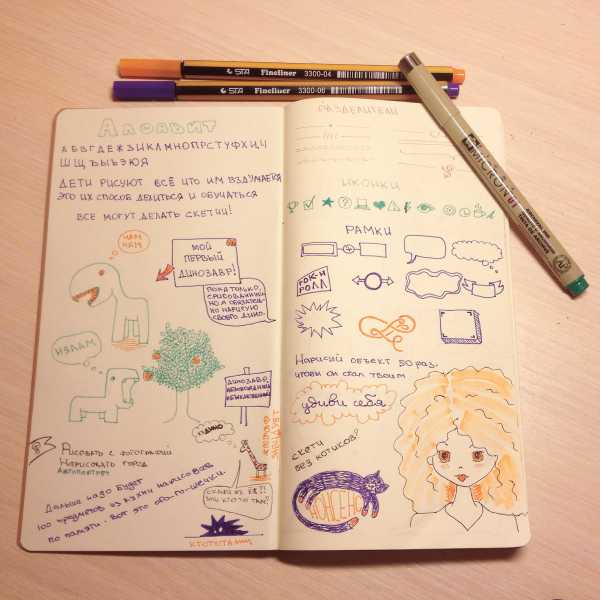 STA Fineliner 3300-04
STA Fineliner 3300-06
MICRON
Алфавит
АБВГДЕЖЗИКЛМНОПРСТУФХЦЧ
ШЩЪЫЬЭЮЯ
ДЕТИ РИСУЮТ ВСЁ ЧТО ИМ ВЗДУМАЕТСЯ
ЭТО ИХ СПОСОБ ДЕЛИТЬСЯ И ОБУЧАТЬСЯ
ВСЕ МОГУТ ДЕЛАТЬ СКЕТЧИ!
НАМ
НЯМ
МОЙ
ПЕРВЫЙ
ДИНОЗАВР!
ПОКА ТОЛЬКО
СРИСОВАННЫЙ
НО Я ОБЯЗАТЕЛЬ-
НО НАРИСУЮ
СВОЕГО ДИНО.
ДИНОЗАВР
ДИНО
РИСОВАТЬ С ФОТОГРАФИЙ
НАРИСОВАТЬ ГОРОД
АВТОПОРТРЕТ
ДАЛЬШЕ НАДО БУДЕТ
100 ПРЕДМЕТОВ ИЗ КУХНИ НАРИСОВАТЬ
ПО ПАМЯТИ. ВОТ ЭТО ОГО-ГО-ШЕЧКИ.
КТО ТО ТАМ?
РАЗДЕЛИТЕЛИ
ИКОНКИ
РАМКИ
РОК-Н
РОЛЛ
НАРИСУЙ ОБЪЕКТ 50 РАЗ,
ЧТОБЫ ОН СТАЛ ТВОИМ
удиви себя
СКЕТЧ
БЕЗ КОТИКОВ?
НОНСЕНС